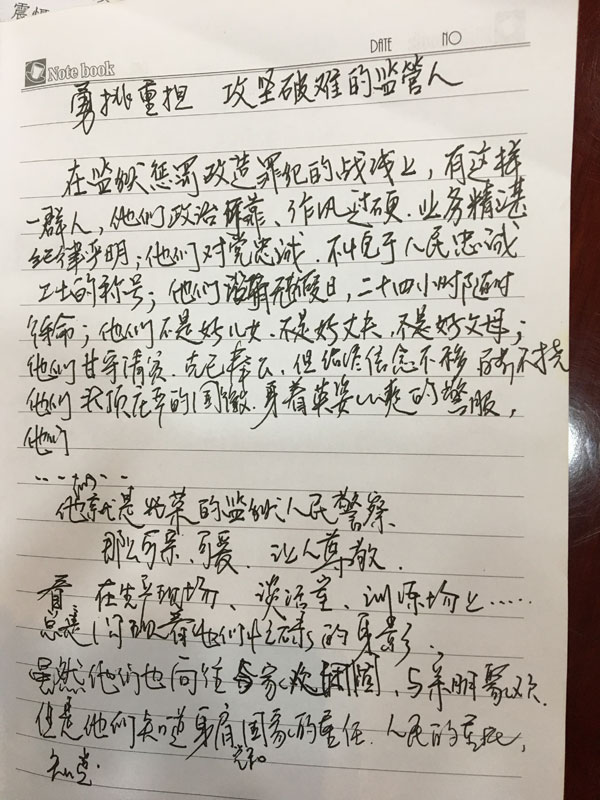 震
DATE NO
Note book
勇挑重担 攻坚破难的监管人
在监狱惩罚改造罪犯的战线上，有这样
一群人，他们政治可靠、作风过硬、业务精湛
纪律严明；他们对党忠诚、不辱人民忠诚
卫士的称号；他们没有节假日，二十四小时随时
待命；他们不是好儿女、不是好丈夫、不是好父母；
他们甘守清贫、克己奉公、但信念不移
他们头顶庄严的国徽、身着英姿飒爽的警服，
他们
……
他们就是光荣的监狱人民警察
那么可亲、可爱、让人尊敬
看 在生产现场、谈话室、训练场上……
总是闪现着他们忙碌的身影，
虽然他们也向往合家欢团圆，与亲朋聚欢
但是他们知道身肩国家的重任、人民的重托，
和党